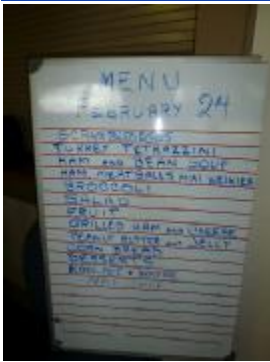 MENU
FEBRUARY 24
TURKEY TETRAZZINI
HAM AND BEAN SOUP
HAM, MEATBALLS MINI
BROCCOLI
SALAD
FRUIT
GRILLED HAM AND CHEESE
PEANUT BUTTER AND JELLY
CORN BREAD
DESSERTS